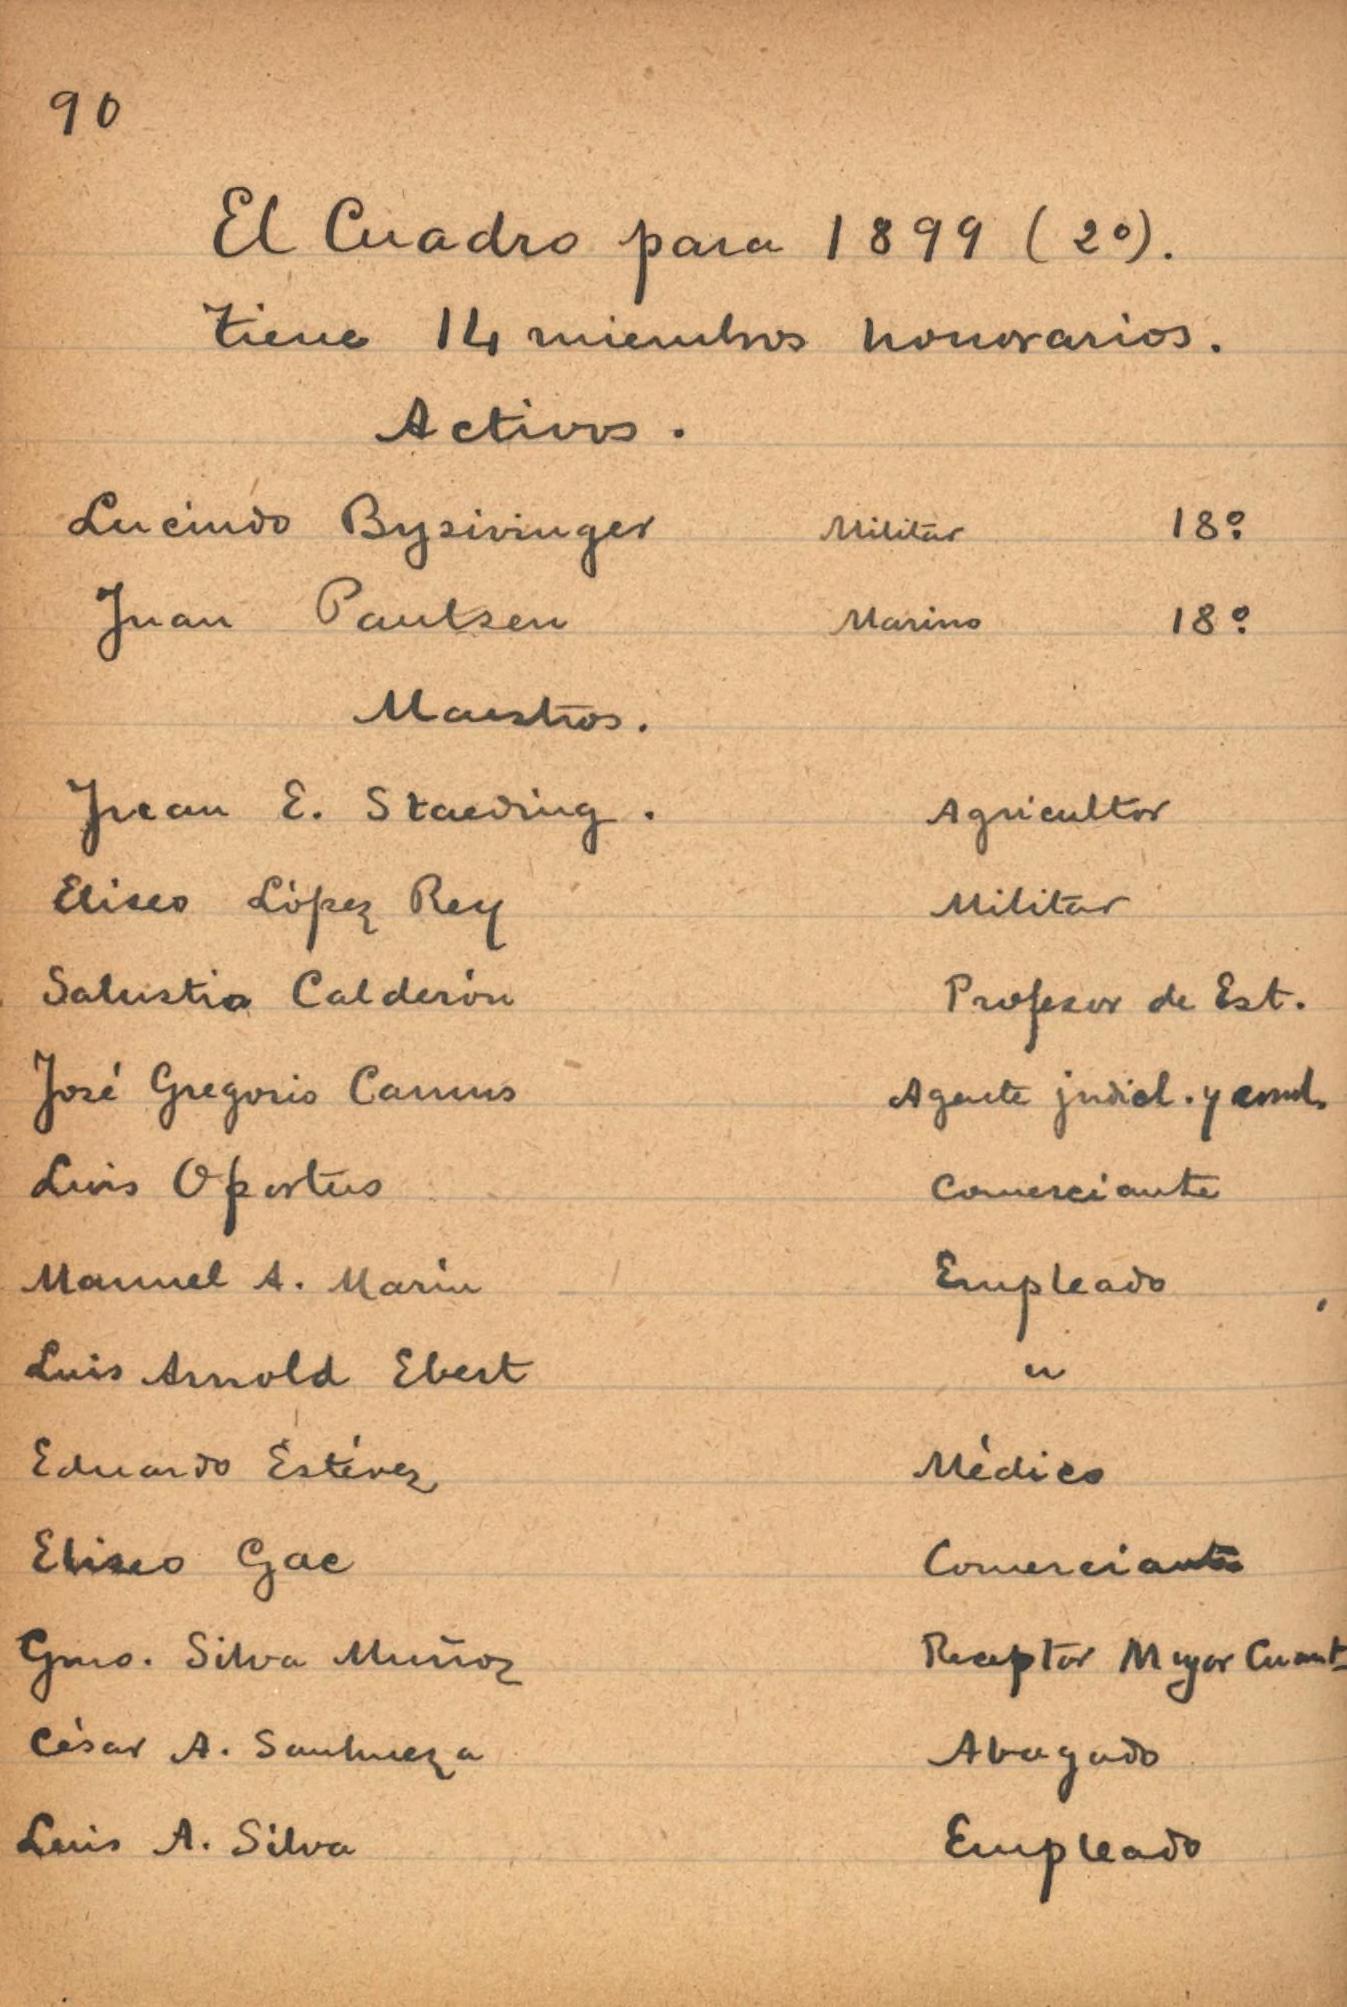 90
El Cuadro para 1899 (2º).
tiene 14 miembros honorarios.
Activos.
Lucindo Bysivinger Militar 18º
Juan Paulsen Marino 18º
Maestros.
Juan E. Staeding. Agricultor
Eliseo López Rey Militar
Salustio Calderón Profesor de Est.
José Gregorio Camus Agente judicl. y
Luis Oportus Comerciante
Manuel A. Marín Empleado
Luis Arnold Ebert "
Eduardo Estévez Médico
Eliseo Gac Comerciante
Gmo. Silva Muñoz Receptor Mayor Cuant
César A. Sanhueza Abogado
Luis A. Silva Empleado